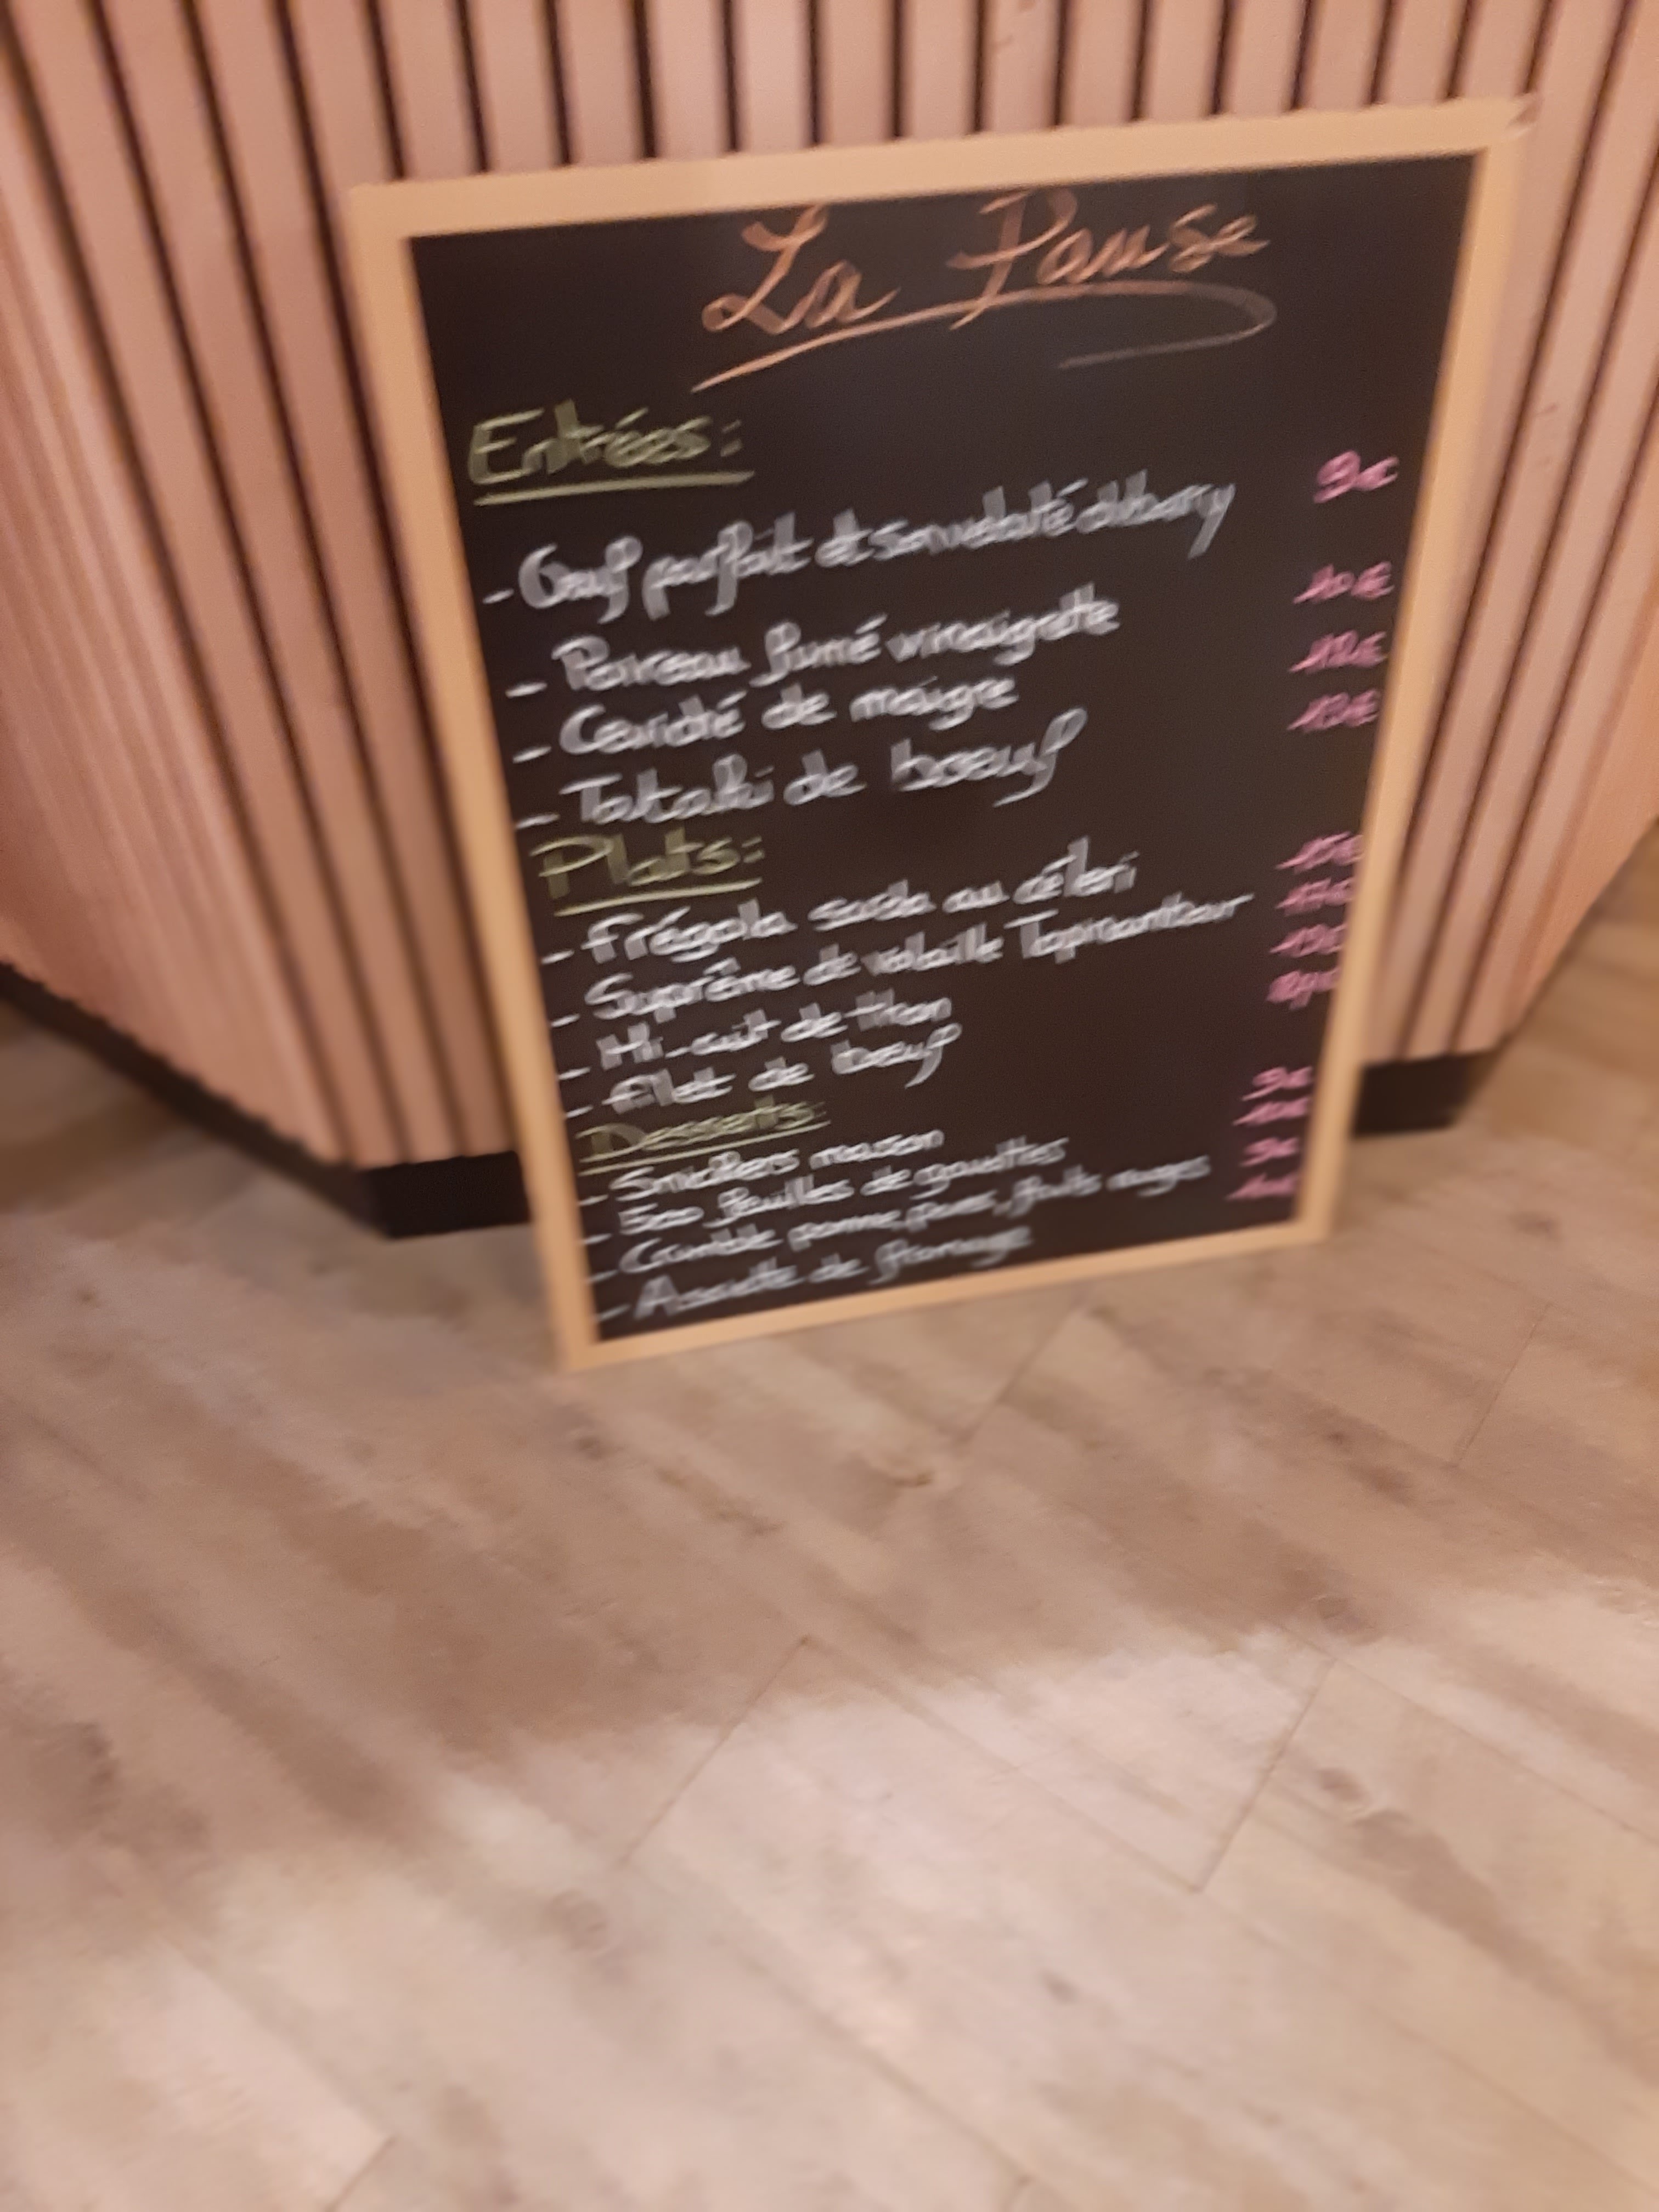 La Pause
Entrées:
- Oeuf parfait et son velouté dubarry 9€
- Poireau fumé vinaigrette 10€
- Ceviché de maigre 12€
- Tataki de boeuf 13€
Plats:
- Frégola sarda au céleri 15€
- Suprême de volaille Topinambour 17€
- Mi-cuit de thon 19€
- Filet de boeuf
Desserts:
- Snickers maison 9€
- 500 feuilles de gavottes 10€
- Crumble pomme, poires, fruits rouges 9€
- Assiette de fromage